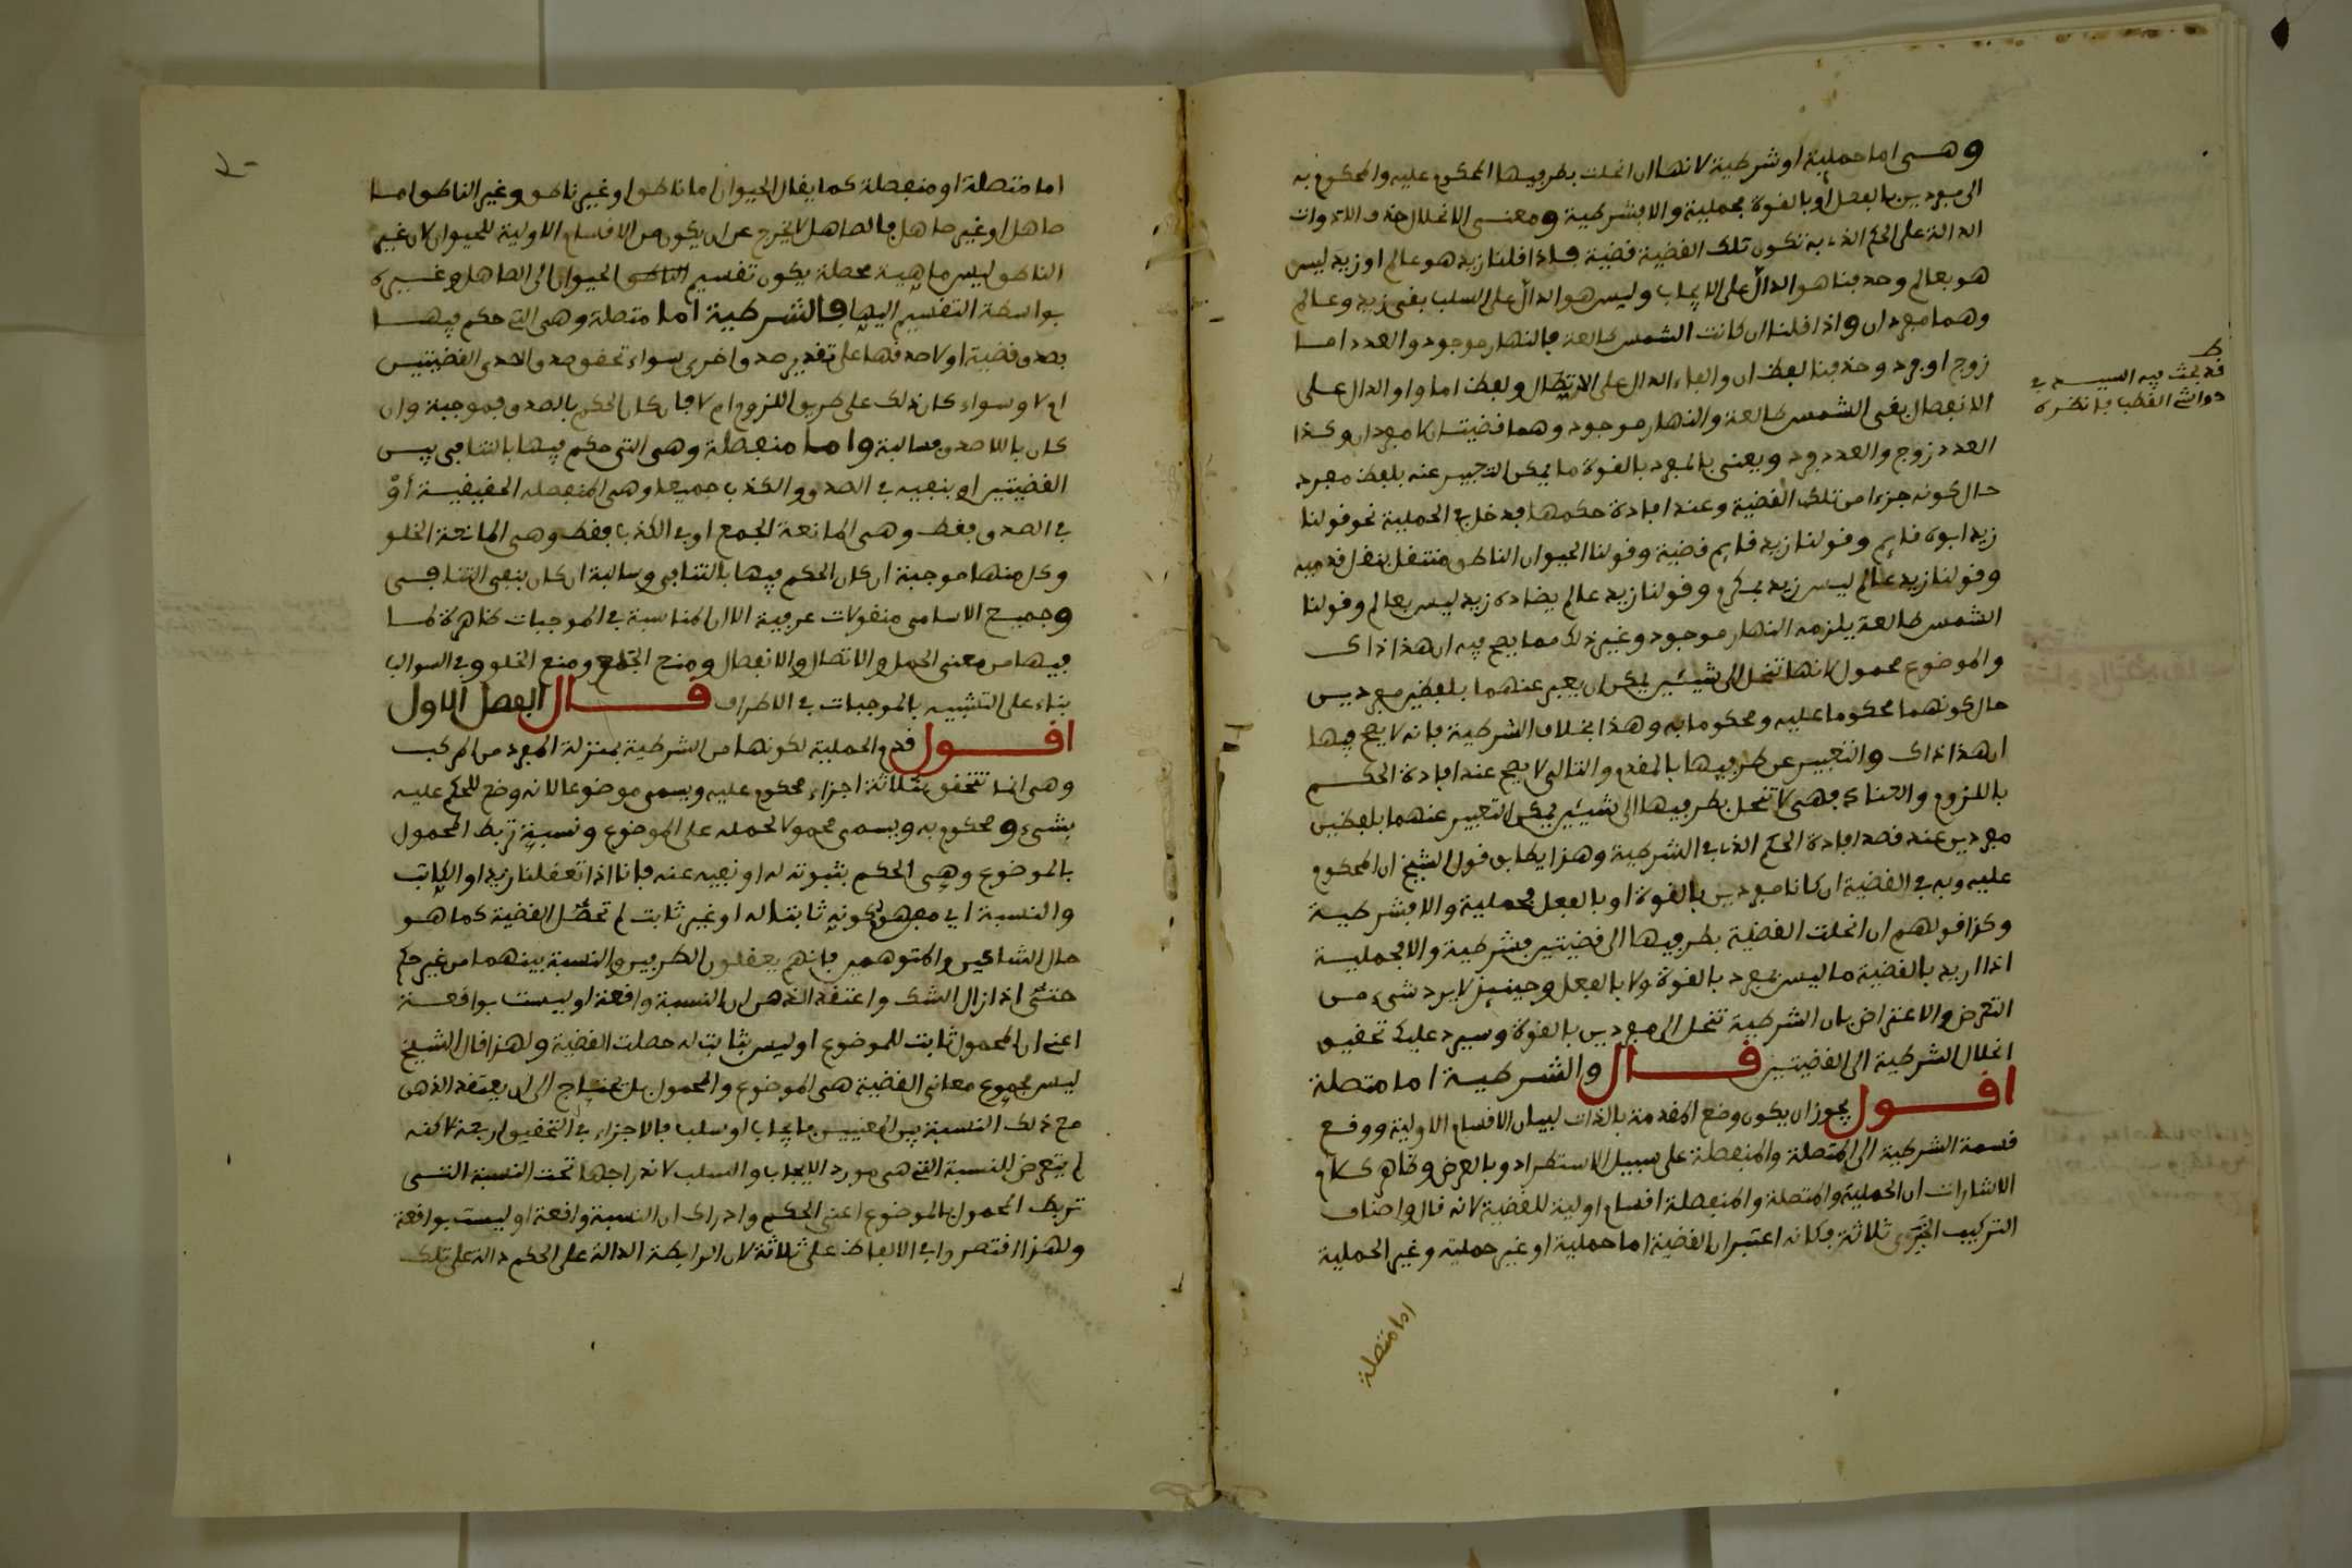 وهى اما حملية او شرطية لانها ان انحلت بطرفيها المحكوم عليه والمحكوم به
الى مفردين بالفعل او بالقوة فحملية والا فشرطية ومعنى الانحلال حذف الادوات
الدالة على الحكم الذى به تكون تلك القضية قضية فاذا قلنا زيد هو عالم او زيد ليس
هو بعالم وحذفنا هو الدالّ على الايجاب وليس هو الدالّ على السلب بقى زيد وعالم
وهما مفردان واذا قلنا ان كانت الشمس طالعة فالنهار موجود والعدد اما
زوج او فرد وحذفنا لفظ ان والفاء الدال على الاتصال ولفظ اما واو الدال على
الانفصال بقى الشمس طالعة والنهار موجود وهما قضيتان لا مفردان وكذا
العدد زوج والعدد فرد ويعنى بالمفرد بالقوة ما يمكن التعبير عنه بلفظ مفرد
حال كونه جزءا من تلك القضية وعند افادة حكمها فدخل فى الحملية نحو قولنا
زيد ابوه قايم وقولنا زيد قايم قضية وقولنا الحيوان الناطق منتقل بنقل قدميه
وقولنا زيد عالم ليس زيد بمكرم وقولنا زيد عالم يضاده زيد ليس بعالم وقولنا
الشمس طالعة يلزمه النهار موجود وغير ذلك مما يصح فيه ان هذا ذاك
والموضوع محمول لانها تنحل الى شيئين يمكن ان يعبر عنهما بلفظين مفردين
حال كونهما محكوما عليه ومحكوما به وهذا بخلاف الشرطية فانه لا يصح فيها
ان هذا ذاك والتعبير عن طرفيها بالمقدم والتالى لا يصح عند افادة الحكم
باللزوم والعناد فهى لا تنحل بطرفيها الى شيئين يمكن التعبير عنهما بلفظين
مفردين عند قصد افادة الحكم الذى فى الشرطية وهذا يطابق قول الشيخ ان المحكوم
عليه وبه فى القضية ان كانا مفردين بالقوة او بالفعل فحملية والا فشرطية
وكذا قولهم ان انحلت القضية بطرفيها الى قضيتين فشرطية والا فحملية
اذا اريد بالقضية ما ليس بمفرد بالقوة ولا بالفعل وحينئذ لا يرد شىء من
النقض والاعتراض بان الشرطية تنحل الى مفردين بالقوة وسيرد عليك تحقيق
انحلال الشرطية الى القضيتين قال والشرطية اما متصلة
اقول يجوز ان يكون وضع المقدمة بالذات لبيان الاقسام الاولية ووقع
قسمة الشرطية الى المتصلة والمنفصلة على سبيل الاستطراد وبالعرض وظاهر كلام
الاشارات ان الحملية والمتصلة والمنفصلة اقسام اولية للقضية لانه قال واصناف
التركيب الخبرى ثلاثة فكانه اعتبر ان القضية اما حملية او غير حملية وغير الحملية
اما متصلة
ط
قد بحث فيه السيد فى
حواشى القطب فانظره
اما متصلة او منفصلة كما يقال الحيوان اما ناطق او غير ناطق وغير الناطق اما
صاهل او غير صاهل فالصاهل لا يخرج عن ان يكون من الاقسام الاولية للحيوان لان غير
الناطق ليس ماهية محصلة يكون تقسيم الناطق الحيوان الى الصاهل وغيره
بواسطة التقسيم اليها فالشرطية اما متصلة وهى التى حكم فيها
بصدق قضية او لا صدقها على تقدير صدق اخرى سواء تحقق صدق احدى القضيتين
ام لا وسواء كان ذلك على طريق اللزوم ام لا فان كان الحكم بالصدق فموجبة وان
كان باللاصدق فسالبة واما منفصلة وهى التى حكم فيها بالتنافى بين
القضيتين او بنفيه فى الصدق والكذب جميعا وهى المنفصلة الحقيقية أوْ
فى الصدق فقط وهى المانعة الجمع او فى الكذب فقط وهى المانعة الخلو
وكل منها موجبة ان كان الحكم فيها بالتنافى وسالبة ان كان بنفى التنافى
وجميع الاسامى منقولات عرفية الا ان المناسبة فى الموجبات ظاهرة لما
فيها من معنى الحمل والاتصال والانفصال ومنع الجمع ومنع الخلو وفى السوالب
بناء على التشبيه بالموجبات فى الاطراف قال الفصل الاول
اقول قدم الحملية لكونها من الشرطية بمنزلة المفرد من المركب
وهى انما تتحقق بثلاثة اجزاء محكوم عليه ويسمى موضوعا لانه وضع للحكم عليه
بشىء ومحكوم به ويسمى محمولا لحمله على الموضوع ونسبة تربط المحمول
بالموضوع وهى الحكم بثبوته له او نفيه عنه فانا اذا تعقلنا زيدا والكاتب
والنسبة اى مفهوم كونه ثابتا له او غير ثابت لم تحصل القضية كما هو
حال الشاكين والمتوهمين فانهم يعقلون الطرفين والنسبة بينهما من غير حكم
حتى اذا زال الشك واعتقد الذهن ان النسبة واقعة او ليست بواقعة
اعنى ان المحمول ثابت للموضوع او ليس بثابت له حصلت القضية ولهذا قال الشيخ
ليس مجموع معانى القضية هى الموضوع والمحمول بل يحتاج الى ان يعتقد الذهن
مع ذلك النسبة بين المعنيين بايجاب او سلب فالاجزاء فى التحقيق اربعة لاكنه
لم يتعرض للنسبة التى هى مورد الايجاب والسلب لاندراجها تحت النسبة التى
تربط المحمول بالموضوع اعنى الحكم وادراك ان النسبة واقعة او ليست بواقعة
ولهذا اقتصروا فى الالفاظ على ثلاثة لان الرابطة الدالة على الحكم دالة على تلك